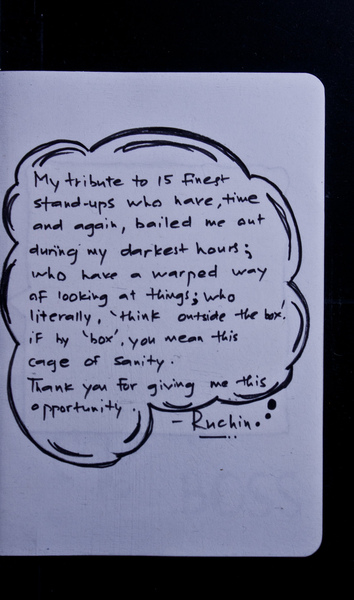 My tribute to 15 finest
stand-ups who have, time
and again, bailed me out
during my darkest hours;
who have a warped way
of looking at things; who
literally, 'think outside the box'.
if by 'box', you mean this
cage of sanity.
Thank you for giving me this
opportunity.
- Ruchin.
BOSS